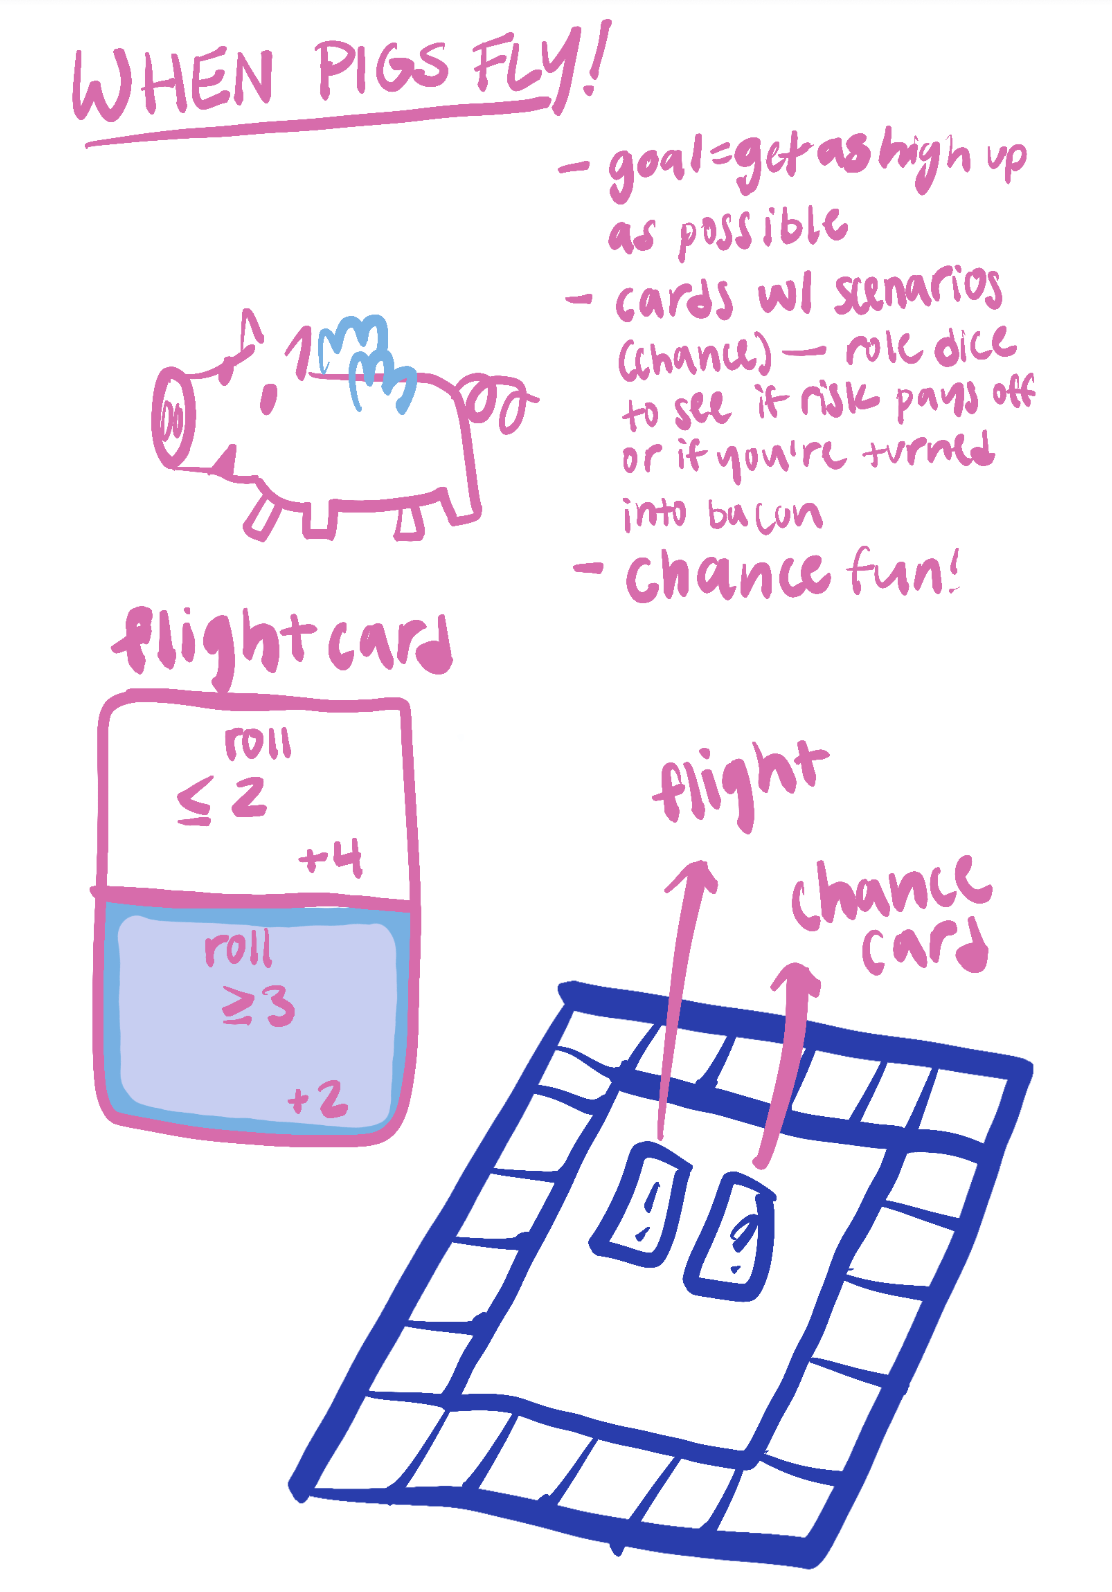 WHEN PIGS FLY!
- goal=get as high up
as possible
- cards w/ scenarios
(chance) — role dice
to see if risk pays off
or if you're turned
into bacon
- chance fun!
flight card
roll
≤ 2
+4
roll
≥3
+2
flight
chance
card
!
?